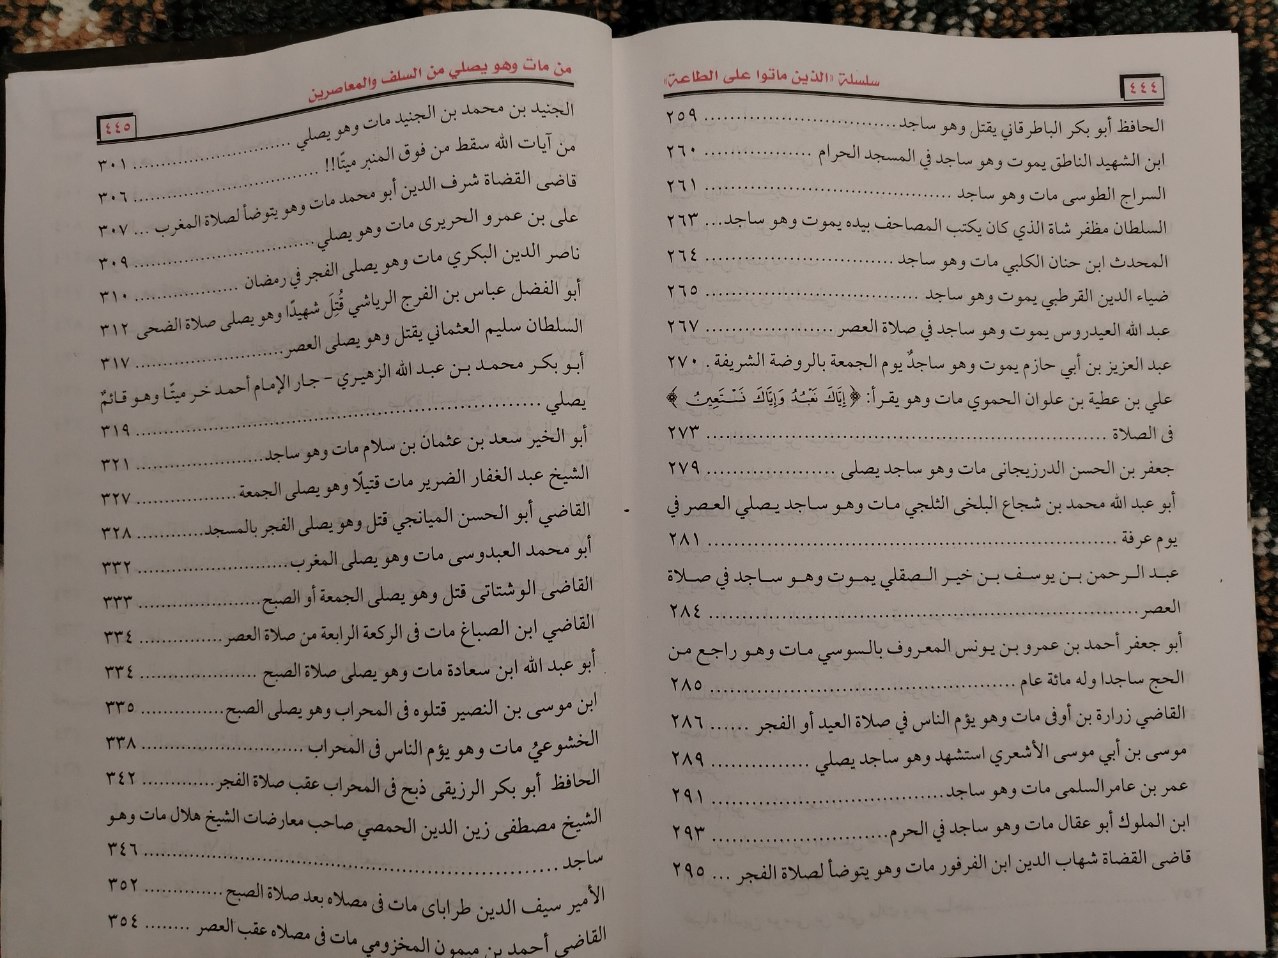 ٤٤٤
سلسلة «الذين ماتوا على الطاعة»
الحافظ أبو بكر الباطرقاني يقتل وهو ساجد ........................ ٢٥٩
ابن الشهيد الناطق يموت وهو ساجد في المسجد الحرام ................ ٢٦٠
السراج الطوسى مات وهو ساجد ........................ ٢٦١
السلطان مظفر شاة الذي كان يكتب المصاحف بيده يموت وهو ساجد... ٢٦٣
المحدث ابن حنان الكلبي مات وهو ساجد ........................ ٢٦٤
ضياء الدين القرطبي يموت وهو ساجد ........................ ٢٦٥
عبد الله العيدروس يموت وهو ساجد في صلاة العصر .................. ٢٦٧
عبد العزيز بن أبي حازم يموت وهو ساجدٌ يوم الجمعة بالروضة الشريفة . ٢٧٠
علي بن عطية بن علوان الحموي مات وهو يقرأ: ﴿إِيَّاكَ نَعْبُدُ وَإِيَّاكَ نَسْتَعِينُ﴾
فى الصلاة ........................ ٢٧٣
جعفر بن الحسن الدرزيجانى مات وهو ساجد يصلى .................. ٢٧٩
أبو عبد الله محمد بن شجاع البلخى الثلجي مات وهو ساجد يصلي العصر في
يوم عرفة ........................ ٢٨١
عبد الرحمن بن يوسف بن خير الصقلي يموت وهو ساجد في صلاة
العصر ........................ ٢٨٤
أبو جعفر أحمد بن عمرو بن يونس المعروف بالسوسي مات وهو راجع من
الحج ساجدا وله مائة عام ........................ ٢٨٥
القاضي زرارة بن أوفى مات وهو يؤم الناس في صلاة العيد أو الفجر ...... ٢٨٦
موسى بن أبي موسى الأشعري استشهد وهو ساجد يصلي ............... ٢٨٩
عمر بن عامر السلمى مات وهو ساجد........................ ٢٩١
ابن الملوك أبو عقال مات وهو ساجد في الحرم........................ ٢٩٣
قاضى القضاة شهاب الدين ابن الفرفور مات وهو يتوضأ لصلاة الفجر ... ٢٩٥
من مات وهو يصلي من السلف والمعاصرين
٤٤٥
الجنيد بن محمد بن الجنيد مات وهو يصلي ........................ ٣٠١
من آيات الله سقط من فوق المنبر ميتًا!! ........................ ٣٠٦
قاضى القضاة شرف الدين أبو محمد مات وهو يتوضأ لصلاة المغرب ... ٣٠٧
على بن عمرو الحريرى مات وهو يصلي........................ ٣٠٩
ناصر الدين البكري مات وهو يصلى الفجر في رمضان ................ ٣١٠
أبو الفضل عباس بن الفرج الرياشي قُتِلَ شهيدًا وهو يصلى صلاة الضحى ٣١٢
السلطان سليم العثماني يقتل وهو يصلى العصر........................ ٣١٧
أبو بكر محمد بن عبد الله الزهيري - جار الإمام أحمد خر ميتًا وهو قائمٌ
يصلي ........................ ٣١٩
أبو الخير سعد بن عثمان بن سلام مات وهو ساجد........................ ٣٢١
الشيخ عبد الغفار الضرير مات قتيلًا وهو يصلى الجمعة................ ٣٢٧
القاضي أبو الحسن الميانجي قتل وهو يصلى الفجر بالمسجد............ ٣٢٨
أبو محمد العبدوسى مات وهو يصلى المغرب........................ ٣٣٢
القاضى الوشتاتى قتل وهو يصلى الجمعة أو الصبح.................... ٣٣٣
القاضي ابن الصباغ مات فى الركعة الرابعة من صلاة العصر............ ٣٣٤
أبو عبد الله ابن سعادة مات وهو يصلى صلاة الصبح .................. ٣٣٤
ابن موسى بن النصير قتلوه فى المحراب وهو يصلى الصبح............ ٣٣٥
الخشوعيُ مات وهو يؤم الناس فى المحراب ........................ ٣٣٨
الحافظ أبو بكر الرزيقى ذبح فى المحراب عقب صلاة الفجر............ ٣٤٢
الشيخ مصطفى زين الدين الحمصي صاحب معارضات الشيخ هلال مات وهو
ساجد........................ ٣٤٦
الأمير سيف الدين طراباى مات فى مصلاه بعد صلاة الصبح............ ٣٥٢
القاضي أحمد بن ميمون المخزومي مات فى مصلاه عقب العصر ........ ٣٥٤